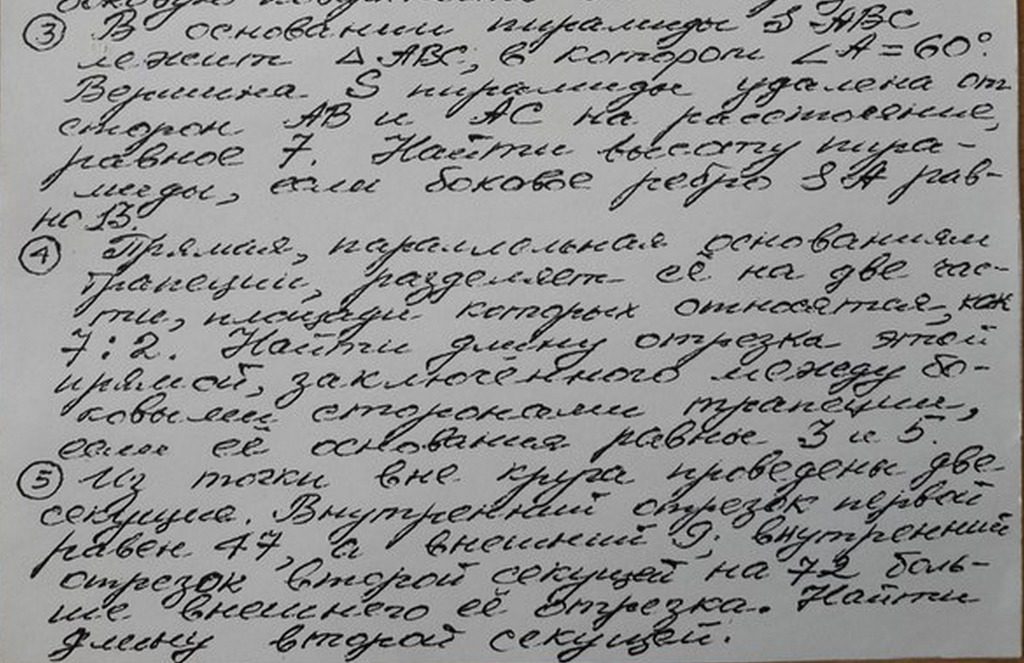 ③ В основании пирамиды SABC
лежит △ ABC, в котором ∠A = 60°.
Вершина S пирамиды удалена от
сторон AB и AC на расстояние,
равное 7. Найти высоту пира-
миды, если боковое ребро SA рав-
но 13.
④ Прямая, параллельная основаниям
трапеции, разделяет её на две час-
ти, площади которых относятся, как
7 : 2. Найти длину отрезка этой
прямой, заключённого между бо-
ковыми сторонами трапеции,
если её основания равны 3 и 5.
⑤ Из точки вне круга проведены две
секущие. Внутренний отрезок первой
равен 47, а внешний 9; внутренний
отрезок второй секущей на 72 боль-
ше внешнего её отрезка. Найти
длину второй секущей.